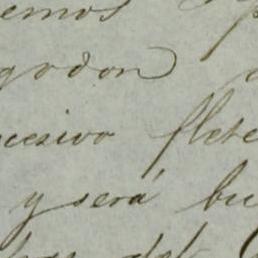 emos
godon
cesivo flete
y será bu